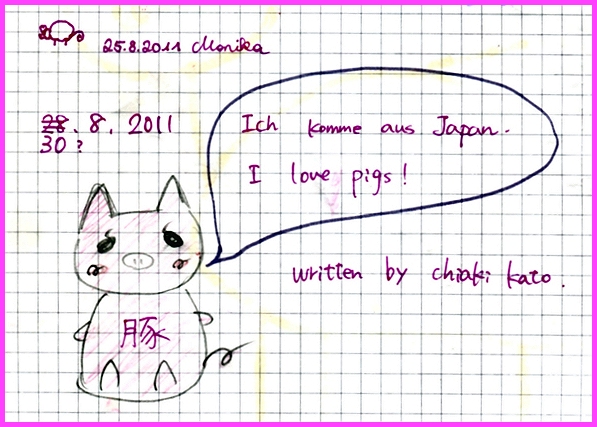 25.8.2011 Monika
28. 8. 2011
30?
Ich komme aus Japan.
I love pigs!
written by chiaki kato.
豚